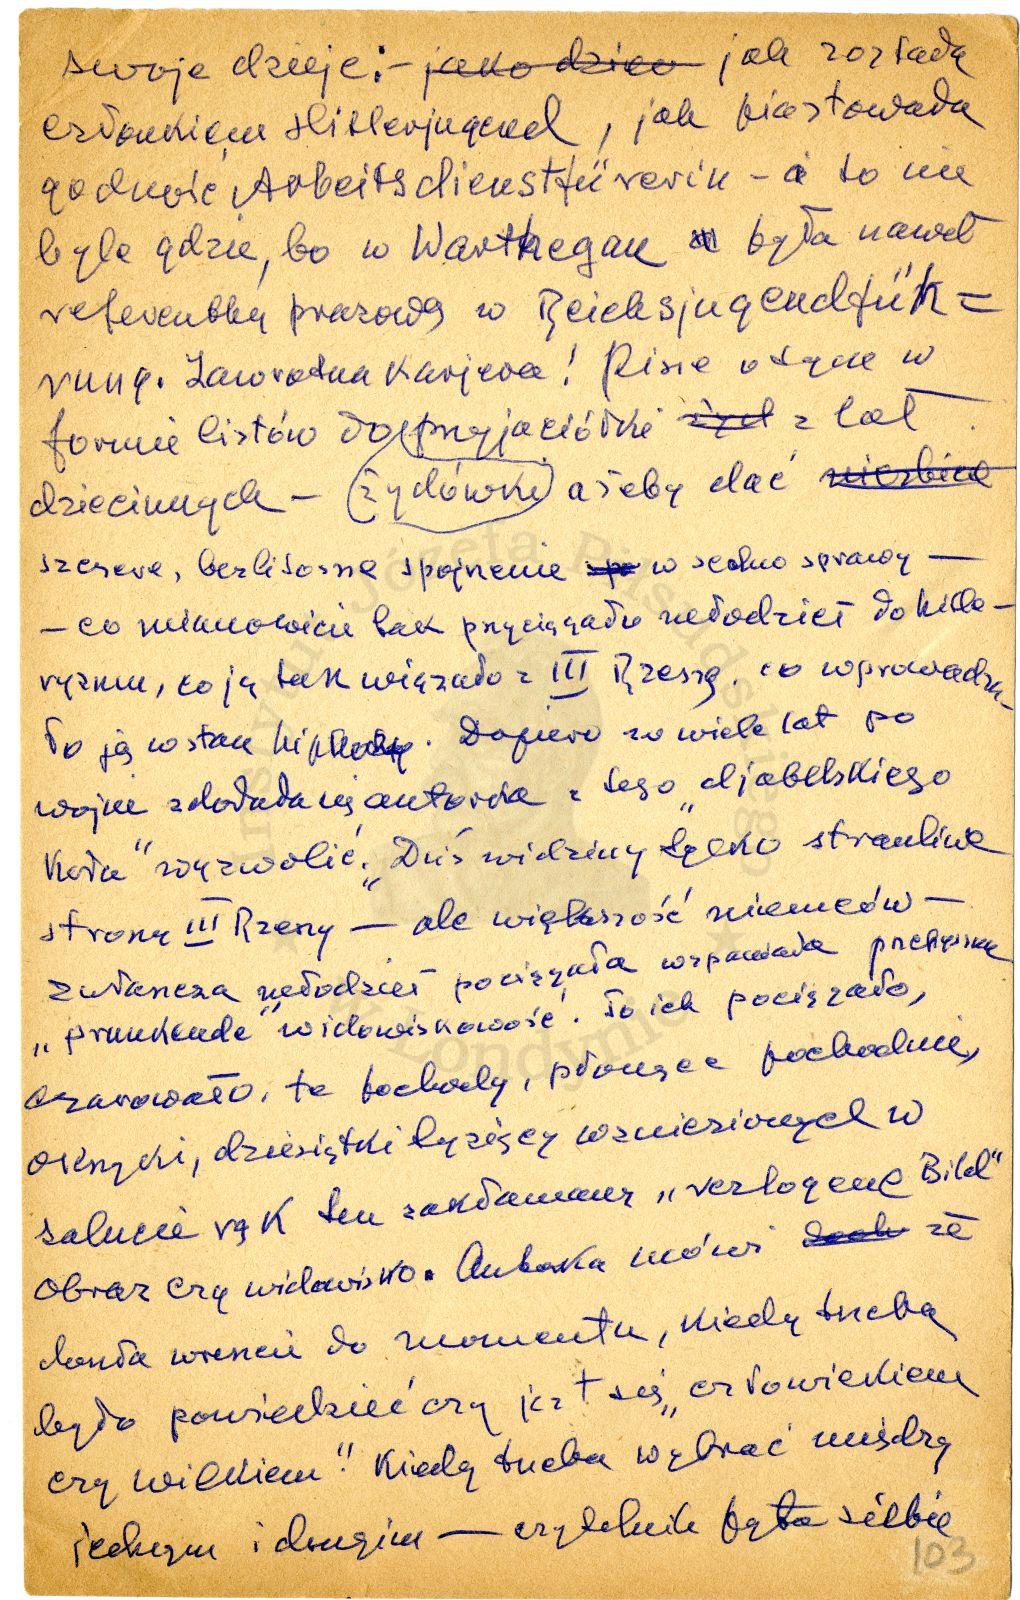 swoje dzieje: – ~~jako dziec~~ jak została
członkiem Hitlerjugend, jak piastowała
godność Arbeitsdienstfürerin – a to nie
byle gdzie, bo w Warthegau była nawet
referentką prasową w Reichsjugendfüh=
rung. Zawrotna karjera! Pisze o tym w
formie listów do przyjaciółki ~~żyd~~ z lat
dziecinnych – (żydówki) ażeby dać
szczere, bezlitosne spojrzenie w sedno sprawy –
– co mianowicie tak przyciągało młodzież do hitle-
ryzmu, co ją tak wiązało z III Rzeszą, co wprowadza-
ło ją w stan hipnozy. Dopiero w wiele lat po
wojnie zdołała się autorka z tego „djabelskiego
koła" wyzwolić. „Dziś widzimy tylko straszliwe
strony III Rzeszy – ale większość niemców –
zwłaszcza młodzież pociągała wspaniała przepyszna
„prunkende" widowiskowość. To ich pociągało,
czarowało, te pochody, płonące pochodnie,
okrzyki, dziesiątki tysięcy wzniesionych w
salucie rąk ten zakłamany „verlogene Bild"
obraz czy widowisko. Autorka mówi że
doszła wreszcie do momentu, kiedy trzeba
było powiedzieć czy jest się „człowiekiem
czy wilkiem". Kiedy trzeba wybrać między
jednym i drugim – czytelnik pyta siebie
103
Instytut Józefa Piłsudskiego
w Londynie